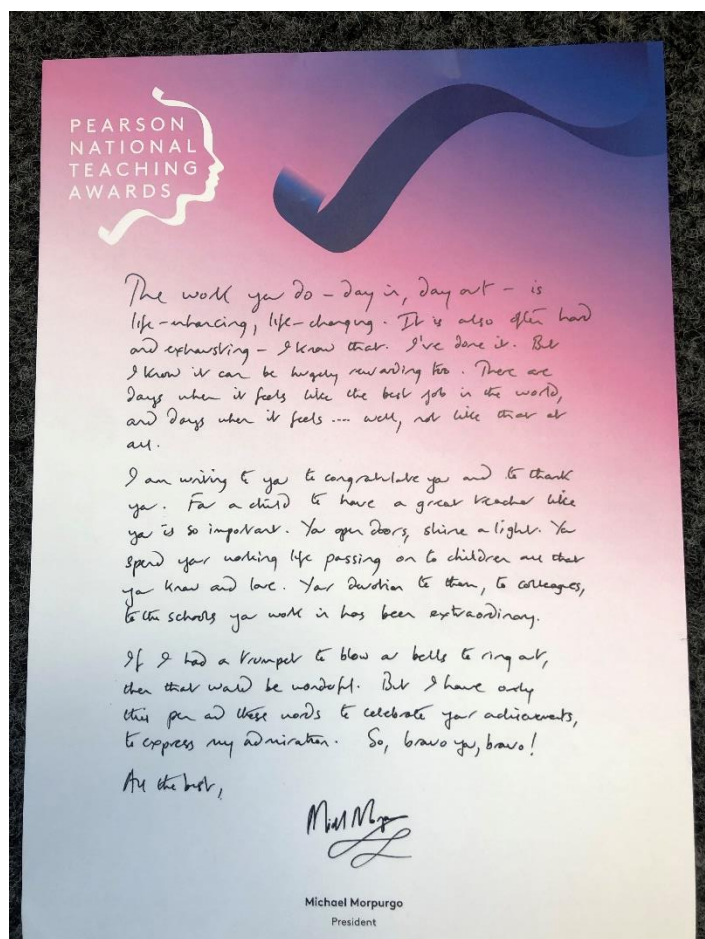 PEARSON
NATIONAL
TEACHING
AWARDS
The work you do – day in, day out – is
life-enhancing, life-changing. It is also often hard
and exhausting – I know that. I've done it. But
I know it can be hugely rewarding too. There are
days when it feels like the best job in the world,
and days when it feels .... well, not like that at
all.
I am writing to you to congratulate you and to thank
you. For a child to have a great teacher like
you is so important. You open doors, shine a light. You
spend your working life passing on to children all that
you know and love. Your devotion to them, to colleagues,
to the schools you work in has been extraordinary.
If I had a trumpet to blow or bells to ring out,
then that would be wonderful. But I have only
this pen and these words to celebrate your achievements,
to express my admiration. So, bravo you, bravo!
All the best,
Michael Morpurgo
President